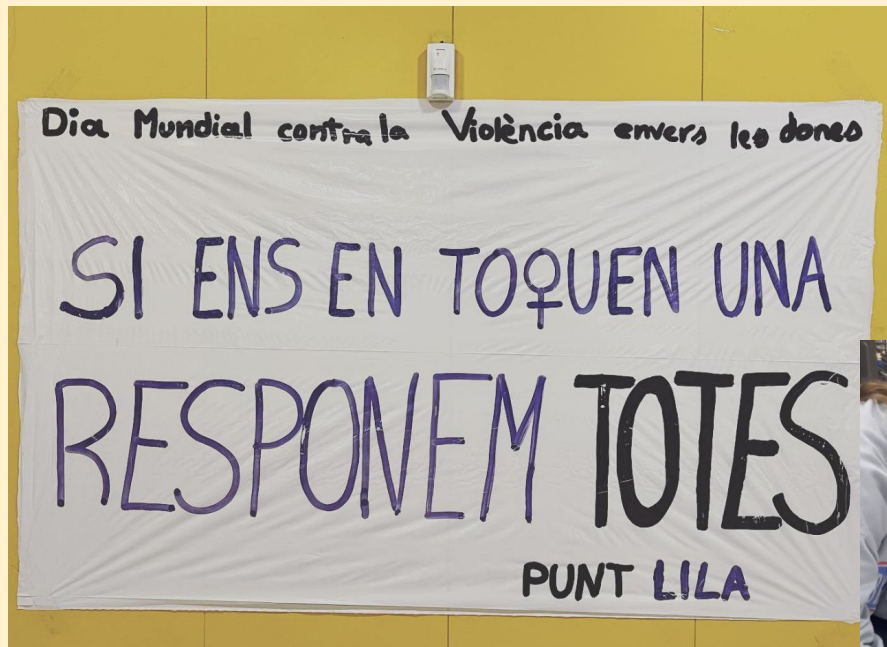 Dia Mundial contra la Violència envers les dones
SI ENS EN TOQUEN UNA
RESPONEM TOTES
PUNT LILA